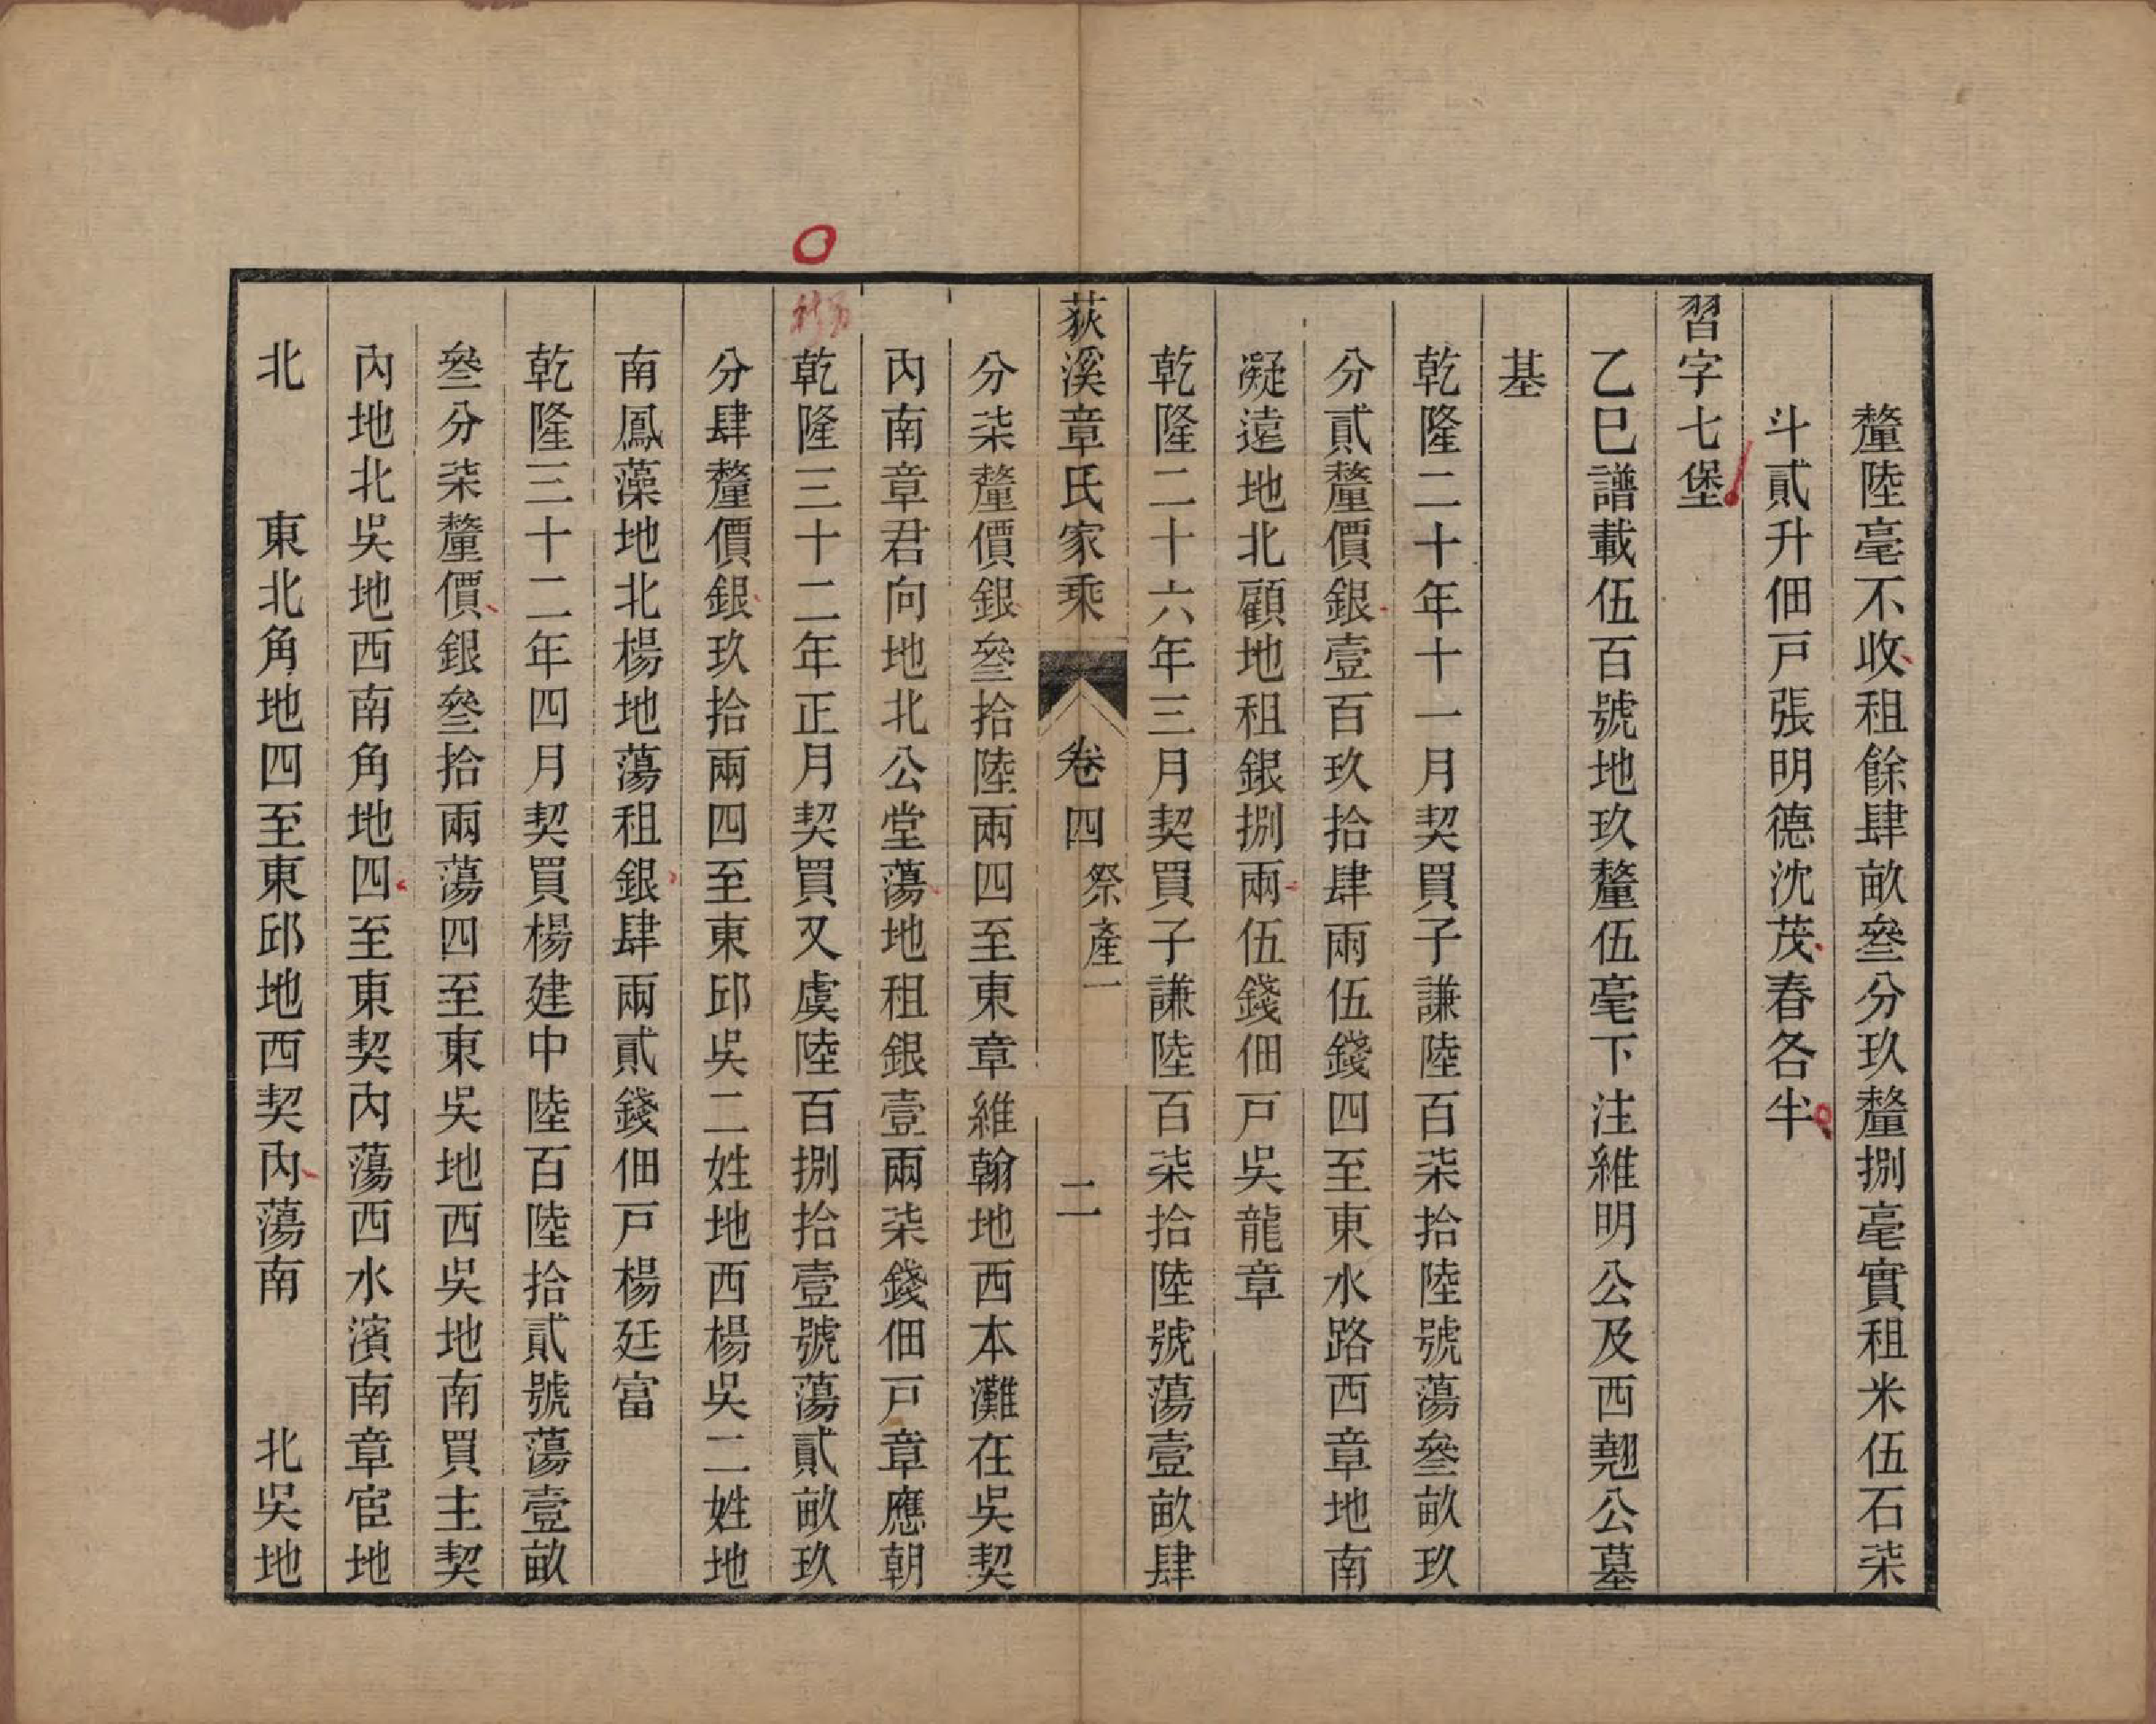 釐陸毫不收租餘肆畝叄分玖釐捌毫實租米伍石柒
斗貳升佃戸張明德沈茂春各半
習字七堡
乙巳譜載伍百號地玖釐伍毫下注維明公及西翹公墓
基
乾隆二十年十一月契買子謙陸百柒拾陸號蕩叄畝玖
分貳釐價銀壹百玖拾肆兩伍錢四至東水路西章地南
凝遠地北顧地租銀捌兩伍錢佃戸吳龍章
乾隆二十六年三月契買子謙陸百柒拾陸號蕩壹畝肆
荻溪章氏家乘 卷四 祭產一 二
分柒釐價銀叄拾陸兩四至東章維翰地西本灘在吳契
內南章君向地北公堂蕩地租銀壹兩柒錢佃戸章應朝
乾隆三十二年正月契買又虞陸百捌拾壹號蕩貳畝玖
分肆釐價銀玖拾兩四至東邱吳二姓地西楊吳二姓地
南鳳藻地北楊地蕩租銀肆兩貳錢佃戸楊廷富
乾隆三十二年四月契買楊建中陸百陸拾貳號蕩壹畝
叄分柒釐價銀叄拾兩蕩四至東吳地西吳地南買主契
內地北吳地西南角地四至東契內蕩西水濱南章宦地
北　東北角地四至東邱地西契內蕩南　北吳地